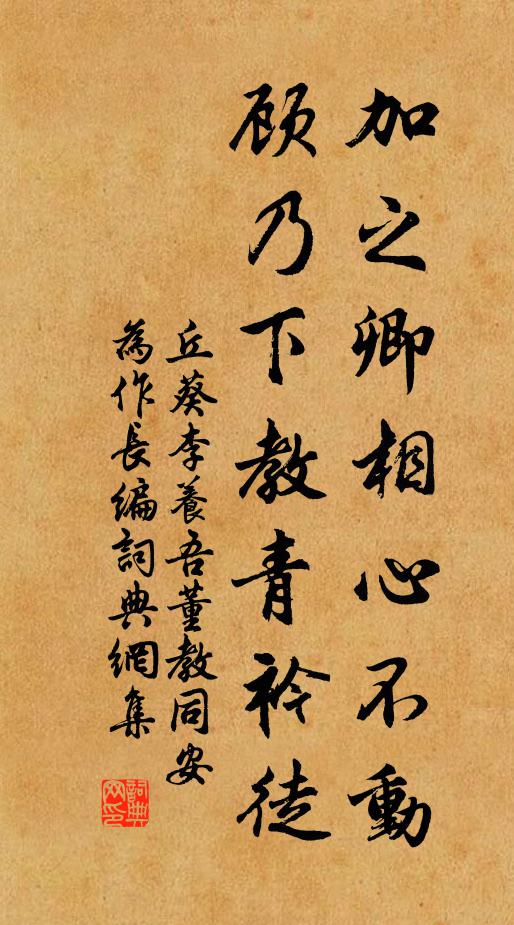 加之卿相心不動
顾乃下教青衿徒
丘葵李養吾董教同安
為作長编詞典網集
詞典网印